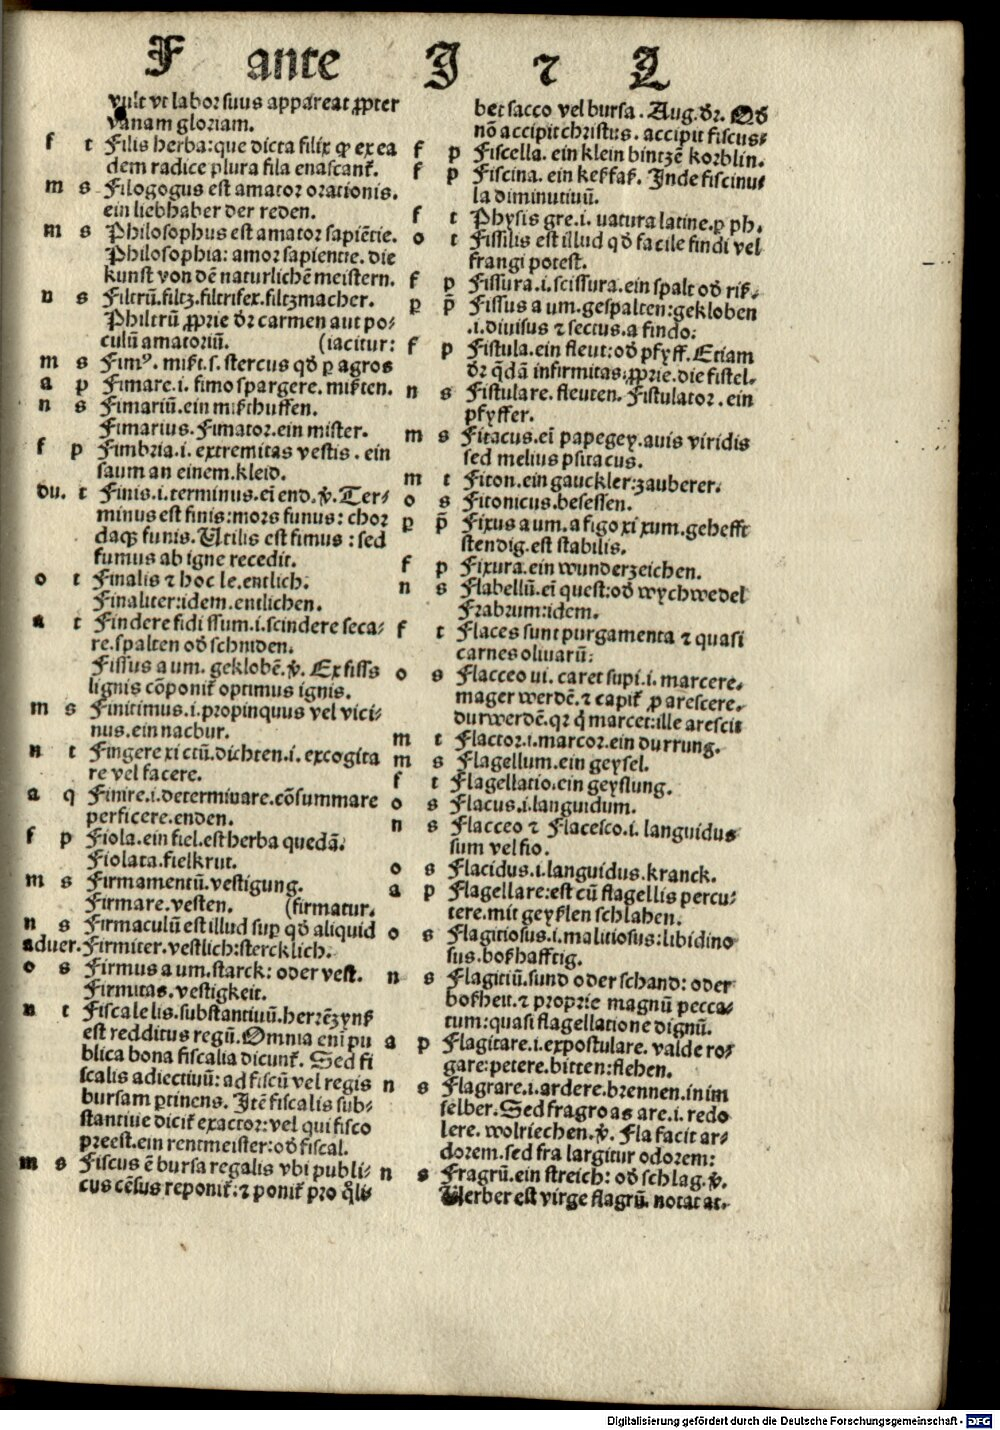 F ante I ⁊ L
vult vt labor suus appareat ꝓpter
vanam gloriam.
f t Filis herba: que dicta filix qꝛ ex ea
dem radice plura fila enascant᷑.
m s Filogogus est amator orationis.
ein liebhaber der reden.
m s Philosophus est amator sapiẽtie.
Philosophia: amor sapientie. die
kunst von dẽ naturlichẽ meistern.
n s Filtrũ. filtz. filtrifex. filtzmacher.
Philtrũ ꝓprie dꝛ carmen aut po⸗
culũ amatoriũ. (iacitur:
m s Fimꝰ. mist. s. stercus qđ ꝑ agros
a p Fimare. i. fimo spargere. misten.
n s Fimariũ. ein misthuffen.
Fimarius. Fimator. ein mister.
f p Fimbria. i. extremitas vestis. ein
saum an einem. kleid.
du. t Finis. i. terminus. eĩ end. v̉. Ter⸗
minus est finis: mors funus: chor
daqꝫ funis. Utilis est fimus: sed
fumus ab igne recedit.
o t Finalis ⁊ hoc le. entlich.
Finaliter: idem. entlichen.
a t Findere fidi ssum. i. scindere seca⸗
re. spalten ođ schniden.
Fissus a um. geklobẽ. v̉. Ex fissis
lignis cõponit᷑ optimus ignis.
m s Finitimus. i. propinquus vel vici⸗
nus. ein nachbur.
n t Fingere xi ctũ. dichten. i. excogita
re vel facere.
a q Finire. i. determinare. cõsummare
perficere. enden.
f p Fiola. ein fiel. est herba quedã.
Fiolata. fielkrut.
m s Firmamentũ. vestigung.
Firmare. vesten. (firmatur.
n s Firmaculũ est illud suꝑ qđ aliquid
aduer. Firmiter. vestlich: stercklich.
o s Firmus a um. starck: oder vest.
Firmitas. vestigkeit.
n t Fiscale lis. substantiuũ. herrẽzynß
est redditus regũ. Omnia enĩ pu
blica bona fiscalia dicunt᷑. Sed fi
scalis adiectiuũ: ad fiscũ vel regis
bursam ꝑtinens. Itẽ fiscalis sub⸗
stantiue dicit᷑ exactor: vel qui fisco
preest. ein rentmeister: ođ fiscal.
m s Fiscus ẽ bursa regalis vbi publi⸗
cus cẽsus reponit᷑: ⁊ ponit᷑ pro q̃li⸗
bet sacco vel bursa. Aug. dꝛ. Qđ
nõ accipit christus. accipit fiscus⸗
f p Fiscella. ein klein bintzẽ korblin.
f p Fiscina. ein keßkaß. Inde fiscinu⸗
la diminutiuũ.
f t Physis gre. i. natura latine. ꝑ ph.
o t Fissilis est illud qđ facile findi vel
frangi potest.
f p Fissura. i. scissura. ein spalt ođ riß.
p p̄ Fissus a um. gespalten: gekloben
.i. diuisus ⁊ sectus. a findo.
f p Fistula. ein fleut: ođ pfyff. Etiam
dꝛ q̃dã infirmitas. ꝓprie. die fistel.
n s Fistulare. fleuten. Fistulator. ein
pfyffer.
m s Fitacus. eĩ papegey. auis viridis
sed melius psitacus.
m t Fiton. ein gauckler: zauberer.
o s Fitonicus. besessen.
p p̄ Fixus a um. a figo xi xum. gehefft
stendig. est stabilis.
f p Fixura. ein wunderzeichen.
n s Flabellũ. eĩ quest: ođ wychwedel
Frabrum: idem.
f t Flaces sunt purgamenta ⁊ quasi
carnes oliuarũ.
o s Flacceo ui. caret supi. i. marcere.
mager werdẽ. ⁊ capit᷑ ꝓ arescere.
dur werdẽ. qꝛ q̇ marcet: ille arescit
m t Flactor. i. marcor. ein durrung.
m s Flagellum. ein geysel.
f t Flagellatio. ein geyslung.
o s Flacus. i. languidum.
n s Flacceo ⁊ Flacesco. i. languidus
sum vel fio.
o s Flacidus. i. languidus. kranck.
a p Flagellare: est cũ flagellis percu⸗
tere. mit geyßlen schlahen.
o s Flagitiosus. i. malitiosus: libidino
sus. boßhafftig.
n s Flagitiũ. sund oder schand: oder
boßheit. ⁊ proprie magnũ pecca⸗
tum: quasi flagellatione dignũ.
a p Flagitare. i. expostulare. valde ro⸗
gare: petere. bitten: flehen.
n s Flagrare. i. ardere. brennen. in im
selber. Sed fragro as are. i. redo
lere. wolriechen. v̉. Fla facit ar⸗
dorem. sed fra largitur odorem:
n s Fragrũ. ein streich: ođ schlag. v̉.
Uerber est virge flagrũ. notat at⸗
Digitalisierung gefördert durch die Deutsche Forschungsgemeinschaft - DFG